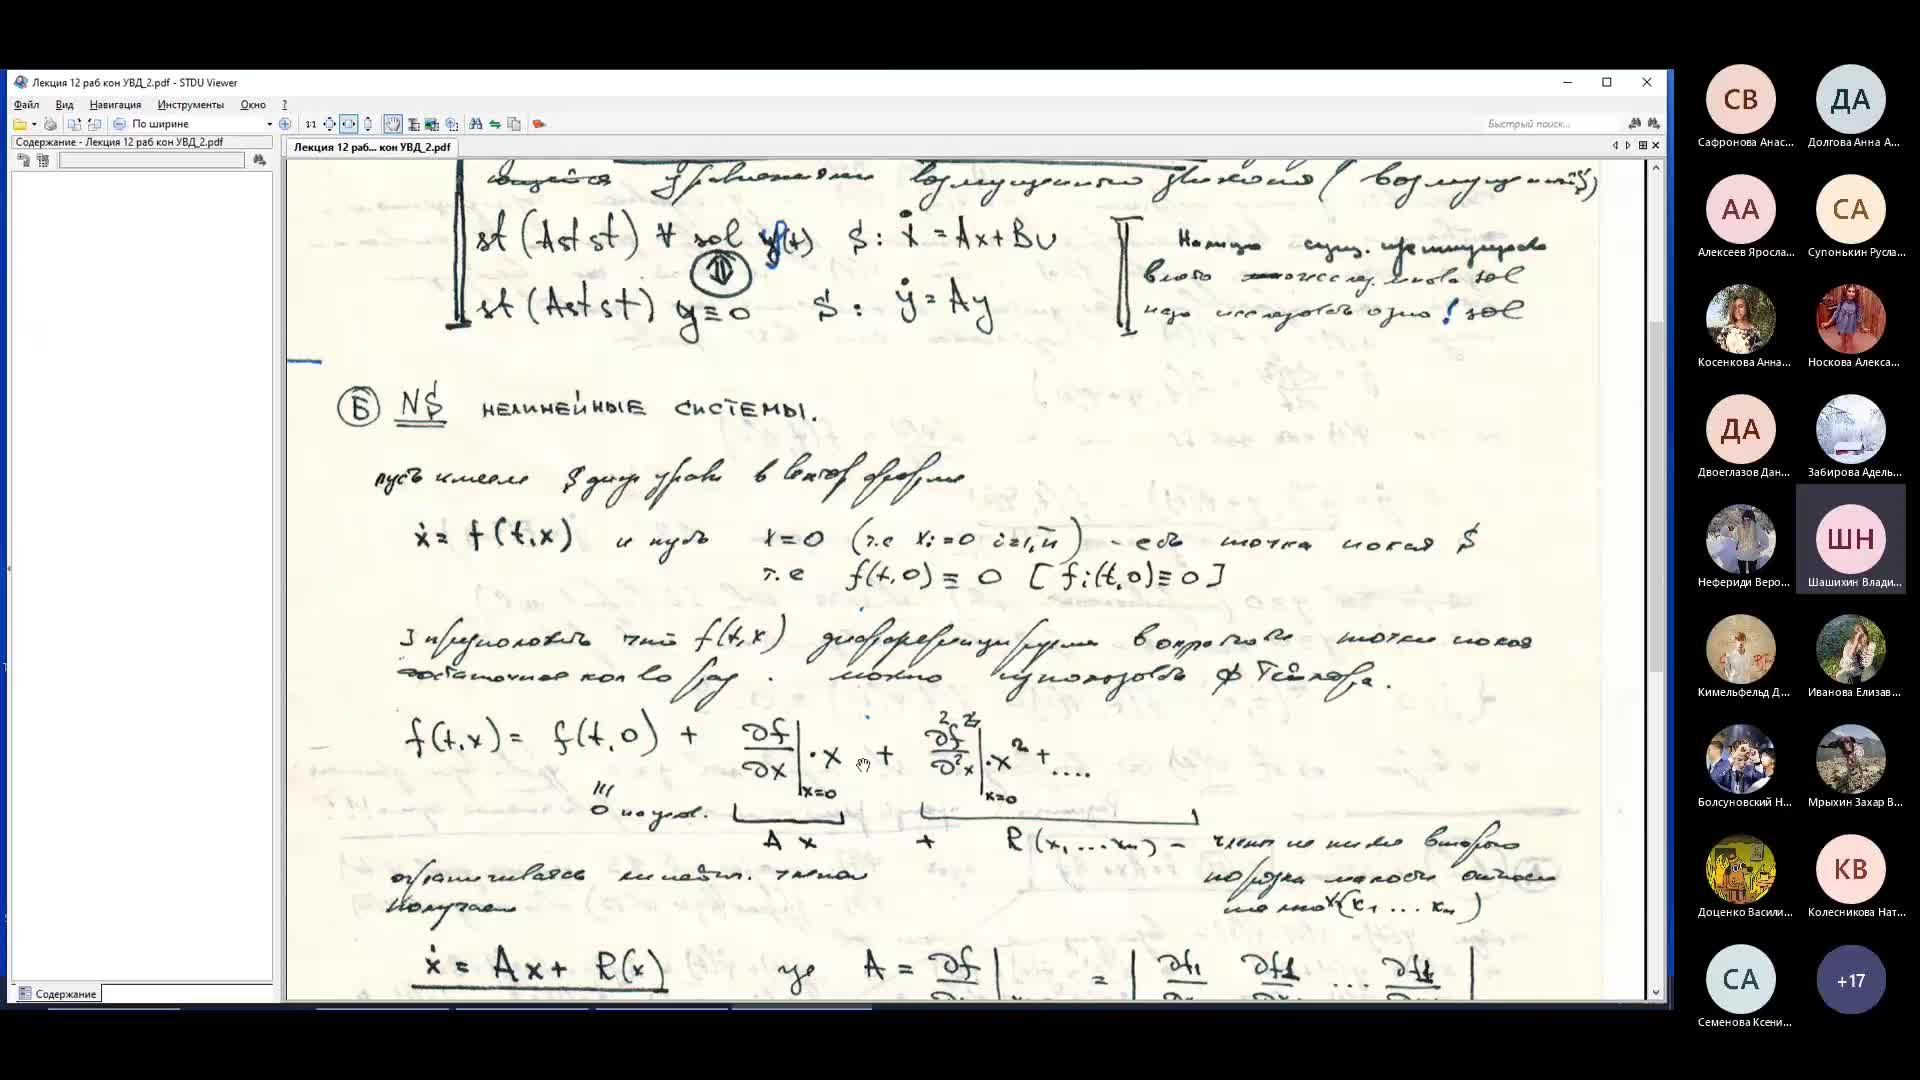 Лекция 12 раб кон УВД_2.pdf - STDU Viewer
Файл Вид Навигация Инструменты Окно ?
По ширине
Быстрый поиск...
Содержание - Лекция 12 раб кон УВД_2.pdf
Лекция 12 раб... кон УВД_2.pdf
уравнениями возмущенного движения (
st (Ast st) ∀ sol y(t) $: ẋ = Ax + Bu
⇕
st (Ast st) y ≡ 0 $: ẏ = Ay
вместо
надо исследовать одно ! sol
Б N$ НЕЛИНЕЙНЫЕ СИСТЕМЫ.
пусть имеем $ диф уравн в вектор форме
ẋ = f(t,x) и пусть x=0 (т.е xi=0 i=1,n) - есть точка покоя $
т.е f(t,0) ≡ 0 [fi(t,0) ≡ 0]
предположить что f(t,x) дифференцируема в окрестности точки покоя
достаточное кол во раз. можно использовать ф Тейлора.
f(t,x) = f(t,0) + ∂f/∂x |x=0 · x + ∂²f/∂²x |x=0 · x² + ....
0 по усл.
A x + R(x1 ... xn) - члены не ниже второго
порядка малости относи
ограничиваясь членом
получаем
тельно (x1 ... xn)
ẋ = Ax + R(x) где A = ∂f = ∂f1 ∂f1 ... ∂f1
Содержание
СВ
Сафронова Анас...
ДА
Долгова Анна А...
АА
Алексеев Яросла...
СА
Супонькин Русла...
Косенкова Анна...
Носкова Алекса...
ДА
Двоеглазов Дан...
Забирова Адель...
Нефериди Веро...
ШН
Шашихин Влади...
Кимельфельд Д...
Иванова Елизав...
Болсуновский Н...
Мрыхин Захар В...
Доценко Васили...
КВ
Колесникова Нат...
СА
Семенова Ксени...
+17